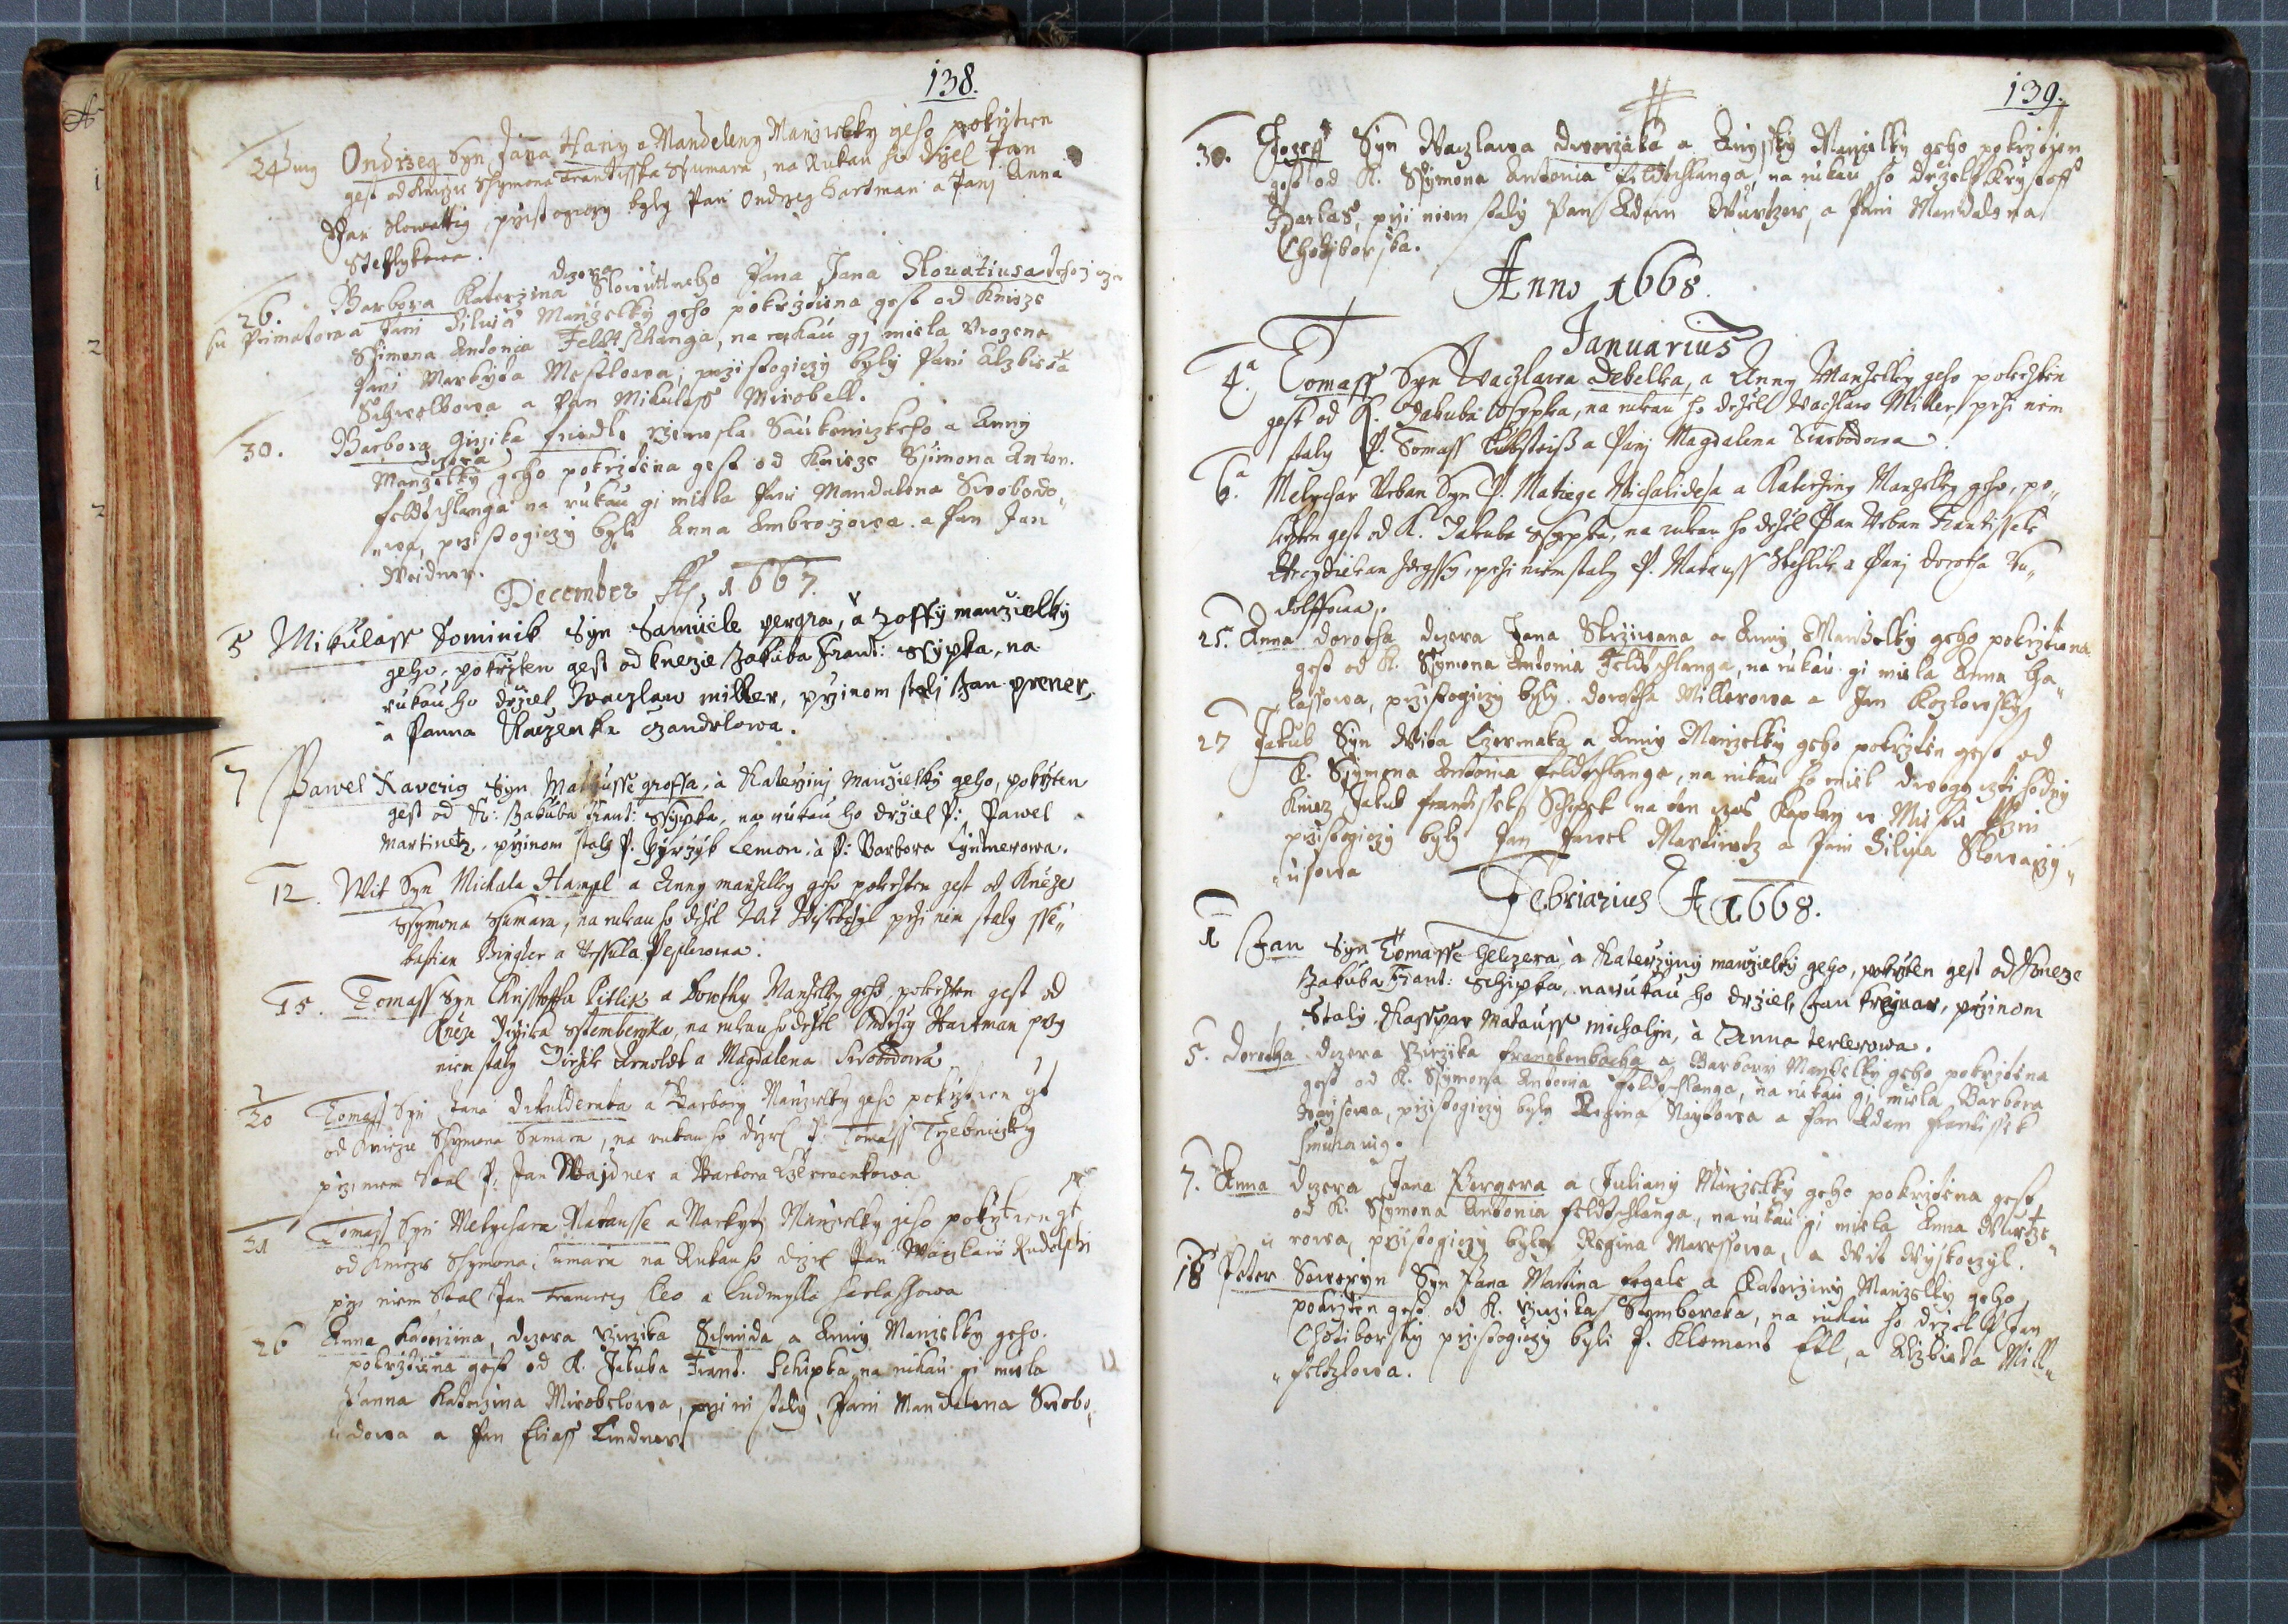 138.
24 Ondrzeg Syn Jana Hany a Mandeleny Manzielky geho pokrztien
gest od Knieze Ssymona Frantisska Ssumara, na Rukau ho drzel Pan
Jan Slowattig, przistogiczy byly Pan Ondrzeg Hartman a Pani Anna
Steflykowa.
26. Barbora Katerzina dczera Slowuttneho Pana Jana Slouatiusa
Primatora a Pani Siluia Manzelky geho pokrztiena gest od Knieze
Ssimona Antonia Feldtschanga, na rukau gi miela Urozena
Pani Markyta Mestlowa, przistogiczy byly Pani Alzbieta
Schwelbowa a Pan Mikulass Mirobell.
30. Barbora dczera Girzika Friedle rzemesla Saukeniczkeho a Anny
Manzelky geho pokrztiena gest od Knieze Ssimona Anton.
Feldtschlanga na rukau gi miela Pani Mandalena Swobodo„
„wa, przistogiczy byli Anna Ambrozowa a Pan Jan
Weidner.
December 1667.
5 Mikulass Dominik Syn Samuele pergra, a Zoffy manzielky
geho, pokrzten gest od knezie Jakuba Frant: Ssypka, na
rukau ho drziel Waczlaw miller, przinom stali Jan prener,
a Panna Kaczenka czandrlowa.
7 Pawel Xaverig Syn Matausse grossa, a Katerzini manzielky geho, pokrzten
gest od K: Jakuba Frant: Ssypka, na rukau ho drziel P: Pawel
Martinetz, przinom staly P. Jyrzyk Lemon, a P: Barbora Lyntnerowa.
12. Wit Syn Michala Hampl a Anny manzelky geho pokrzten gest od Kneze
Ssymona Ssumara, na rukau ho drzel Wit Wiskoczyl przi nem staly Sse„
bastian Bingler a Vrssula Peslerowa.
15. Tomass Syn Krisstoffa Pitlik a Dorothy Manzelky geho, pokrzten gest od
Kneze Girzika Sstemberka, na rukau ho drzel Ondrzeg Hartman przy
niem staly Girzik Arnoldt a Magdalena Swobodowa
20 Tomass Syn Jana a Barbory Manzielky geho pokrztien gst
od Knieze Ssymona Sumara, na rukau ho drzel P: Tomass Trzebniczky
przi niem stal P: Jan Wajdner a Barbora Czerwenkowa
21 Tomass Syn Melychara Matausse a Markyty Manzielky geho pokrztien gt
od Knieze Ssymona Sumara na Rukau ho drzel Pan Waczlaw Rudolphi
przi niem Stal Pan Franczeg Leo a Ludmylla Harlassowa
26 Anna dczera Girzika Schmida a Anny Manzelky geho
pokrztiena gest od K. Jakuba Frant. Schipka na rukau gi miela
Panna Katerzina Mirobelowa, przi ni staly, Pani Mandalena Swobo„
„dowa a Pan Eliass Lindner
139.
30. Jozeff Syn Waczlawa Dworzaka a Manzelky geho pokrztien
gest od K. Ssymona Antonia Feldtschlanga, na rukau ho drzel Krystoff
Harlas, przi niem staly Pan Adam Wurtzer, a Pani Mandalena
Chotiborska.
Anno 1668.
Januarius
4ª. Tomass Syn Waczlawa Debelka, a Anny Manzelky geho pokrzten
gest od K. Jakuba Ssypka, na rukau ho drzel Waczlaw Miller, przi nem
staly P. Tomass a Pani Magdalena Swobodowa.
6ª. Melychar Urban Syn P. Matiege Michalidesa a Katerziny Manzelky geho, po„
krzten gest od K. Jakuba Ssypka, na rukau ho drzel Pan Urban Frantissek
przi niem staly P. Matauss Stehlik a Pani Dorota Ru„
dolffowa.
25. Anna Dorotha dczera Jana Skrziwana a Anny Manzelky geho pokrztiena
gest od K. Ssymona Antonia Feldtschlanga, na rukau gi miela Anna Ha„
„lassowa, przistogiczy byly Dorotha Millerowa a Jan Kozlowsky
27 Jakub Syn Wita Czermaka a Anny Manzelky geho pokrztien gest od
K. Ssymona Antonia Feldtschlanga, na rukau ho miel dwogi cztihodny
Kniez Jakub Frantissek Schipek na ten czas Kaplan w Miestie
przistogiczy byly Pan Pawel Martinetz a Pani Silvia Slowaczy„
„usowa
Februarius A 1668.
1 Jan Syn Tomasse Gelczera, a Katerzyny manzielky geho, pokrzten gest od Kneze
Jakuba Frant: Schipka, na rukau ho drziel, Jan kreynar, przinom
Staly Kasspar Matauss michalyn, a Anna terlerowa.
5. Dorotha dczera Girzika Franckenbacha a Barbory Manzelky geho pokrztiena
gest od K. Ssymona Antonia Feldtschlanga, na rukau gi miela Barbora
Haysowa, przistogiczy byly Regina Naybowa a Pan Adam Frantissek
7. Anna dczera Jana Pergera a Juliany Manzelky geho pokrztiena gest
od K. Ssymona Antonia Feldtschlanga, na rukau gi miela Anna Wurtze„
„rowa, przistogiczy byly Regina Maressowa, a Wit Wyskoczyl.
18 Peter Seweryn Syn Pana Martina Fegale a Katerziny Manzelky geho
pokrzten gest od K. Girzika Stemberka, na rukau ho drzel P. Jan
Chotiborsky przistogiczy byli P. Klement Ebl, a Alzbieta Mill„
„feltzlowa.